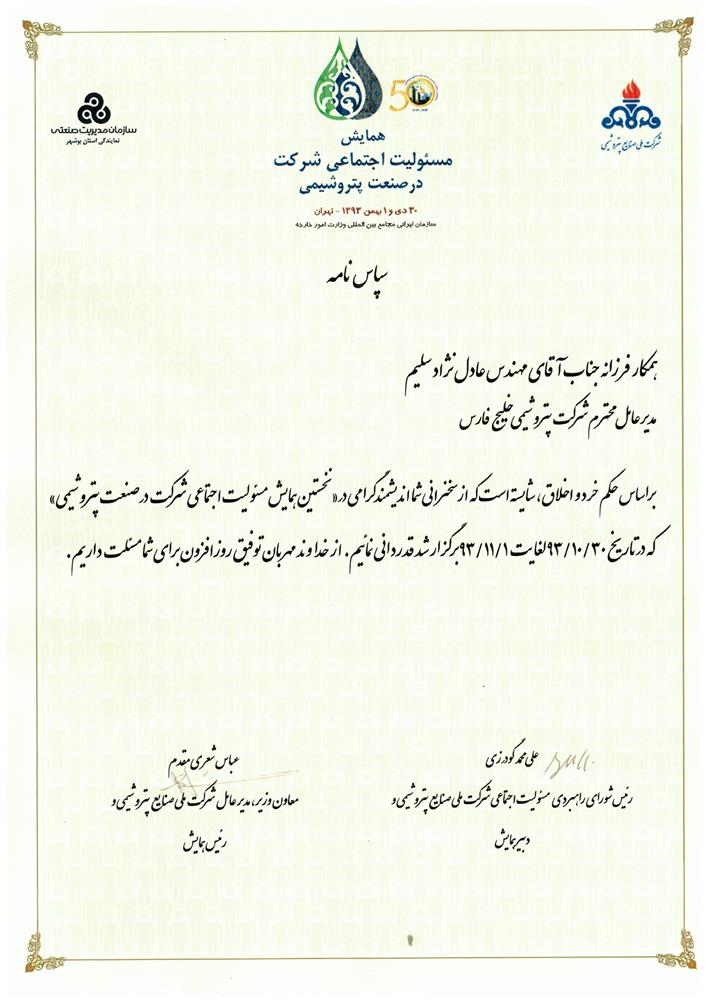 سازمان مدیریت صنعتی
نمایندگی استان بوشهر
50
شرکت ملی صنایع پتروشیمی
همایش
مسئولیت اجتماعی شرکت
در صنعت پتروشیمی
۳۰ دی و ۱ بهمن ۱۳۹۳ - تهران
سازمان ایرانی مجامع بین المللی وزارت امور خارجه
سپاس نامه
همکار فرزانه جناب آقای مهندس عادل نژاد سلیم
مدیرعامل محترم شرکت پتروشیمی خلیج فارس
براساس حکم خرد و اخلاق، شایسته است که از سخنرانی شما اندیشمند گرامی در «نخستین همایش مسئولیت اجتماعی شرکت در صنعت پتروشیمی»
که در تاریخ ۹۳/۱۰/۳۰ لغایت ۹۳/۱۱/۱ برگزار شد قدردانی نمائیم. از خداوند مهربان توفیق روزافزون برای شما مسئلت داریم.
علی محمد گودرزی
رئیس شورای راهبردی مسئولیت اجتماعی شرکت ملی صنایع پتروشیمی و
دبیر همایش
عباس شعری مقدم
معاون وزیر، مدیرعامل شرکت ملی صنایع پتروشیمی و
رئیس همایش